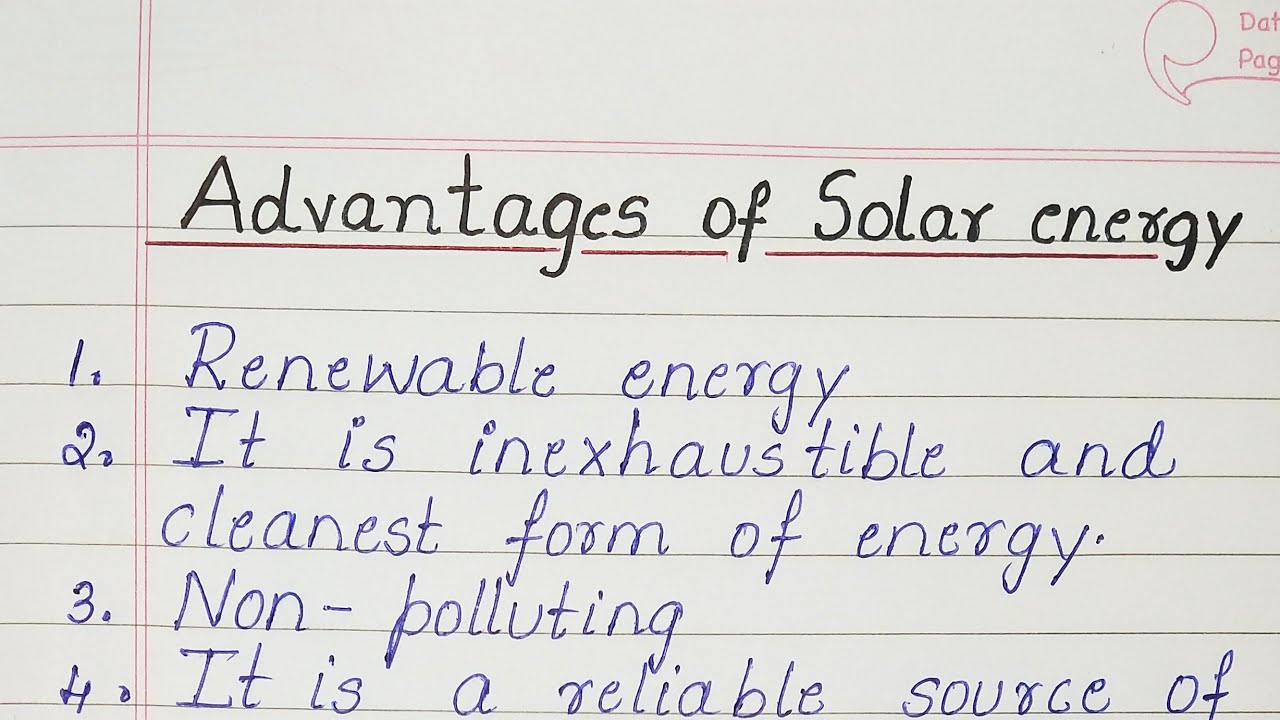 Dat
Pag
Advantages of Solar energy
1. Renewable energy
2. It is inexhaustible and
cleanest form of energy.
3. Non-polluting
4. It is a reliable source of